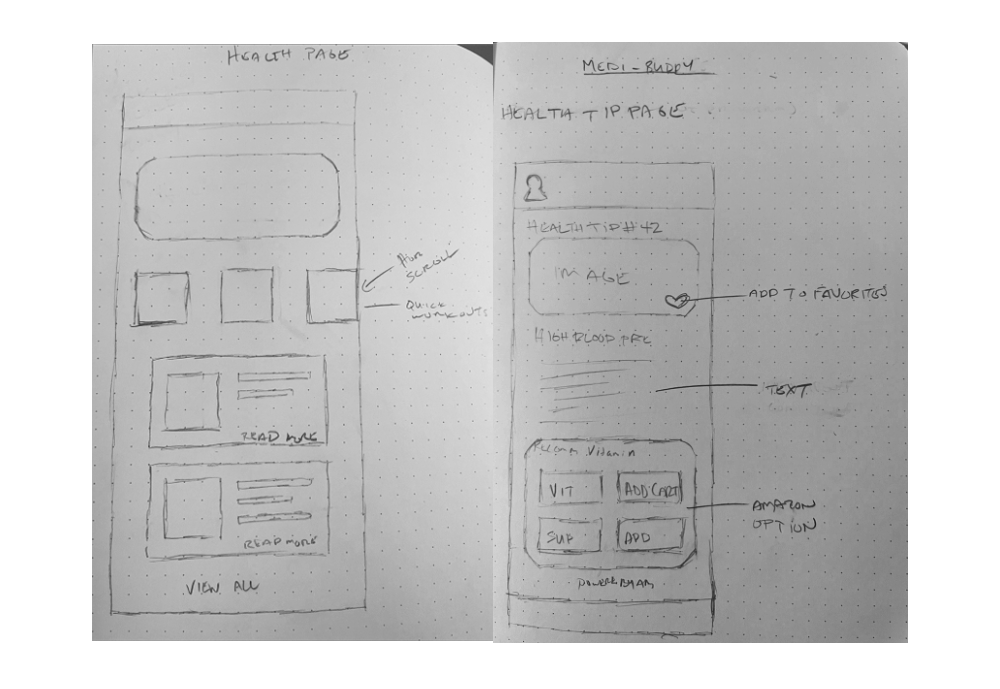 HEALTH PAGE
HOR
SCROLL
QUICK
WORKOUTS
READ MORE
READ MORE
VIEW ALL
MEDI-BUDDY
HEALTH TIP PAGE
HEALTH TIP #42
IMAGE
ADD TO FAVORITES
HIGH BLOOD PRE
TEXT
Vitamin
VIT
ADD CART
AMAZON
OPTION
SUP
ADD